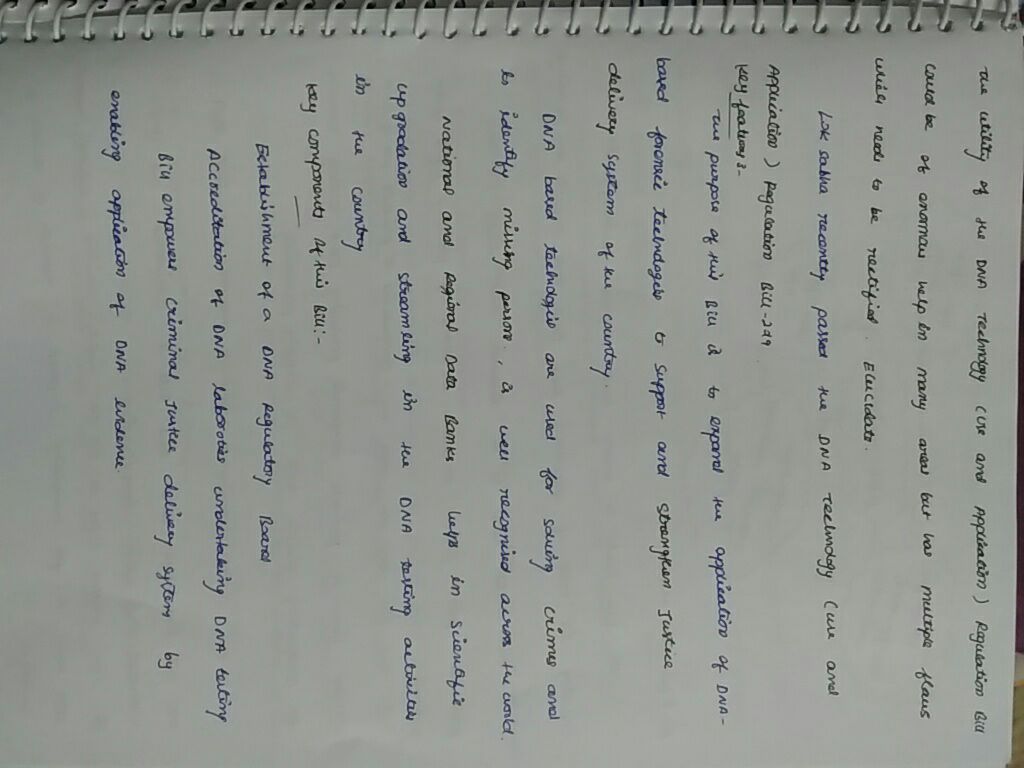 The utility of the DNA Technology (Use and Application) Regulation Bill
could be of enormous help in many areas but has multiple flaws
which needs to be rectified. Elucidate.
Lok sabha recently passed the DNA Technology (use and
Application) Regulation Bill-2019.
Key features:-
The purpose of this Bill is to expand the application of DNA-
based forensic technologies to support and strengthen Justice
delivery system of the country.
DNA based technologies are used for solving crimes and
to identify missing persons, is well recognised across the world.
National and Regional Data Banks helps in Scientific
upgradation and streamlining in the DNA testing activities
in the country
Key components of this Bill:-
Establishment of a DNA Regulatory Board
Accreditation of DNA laboratories undertaking DNA testing
Bill empowers criminal Justice delivery system by
enabling application of DNA evidence.